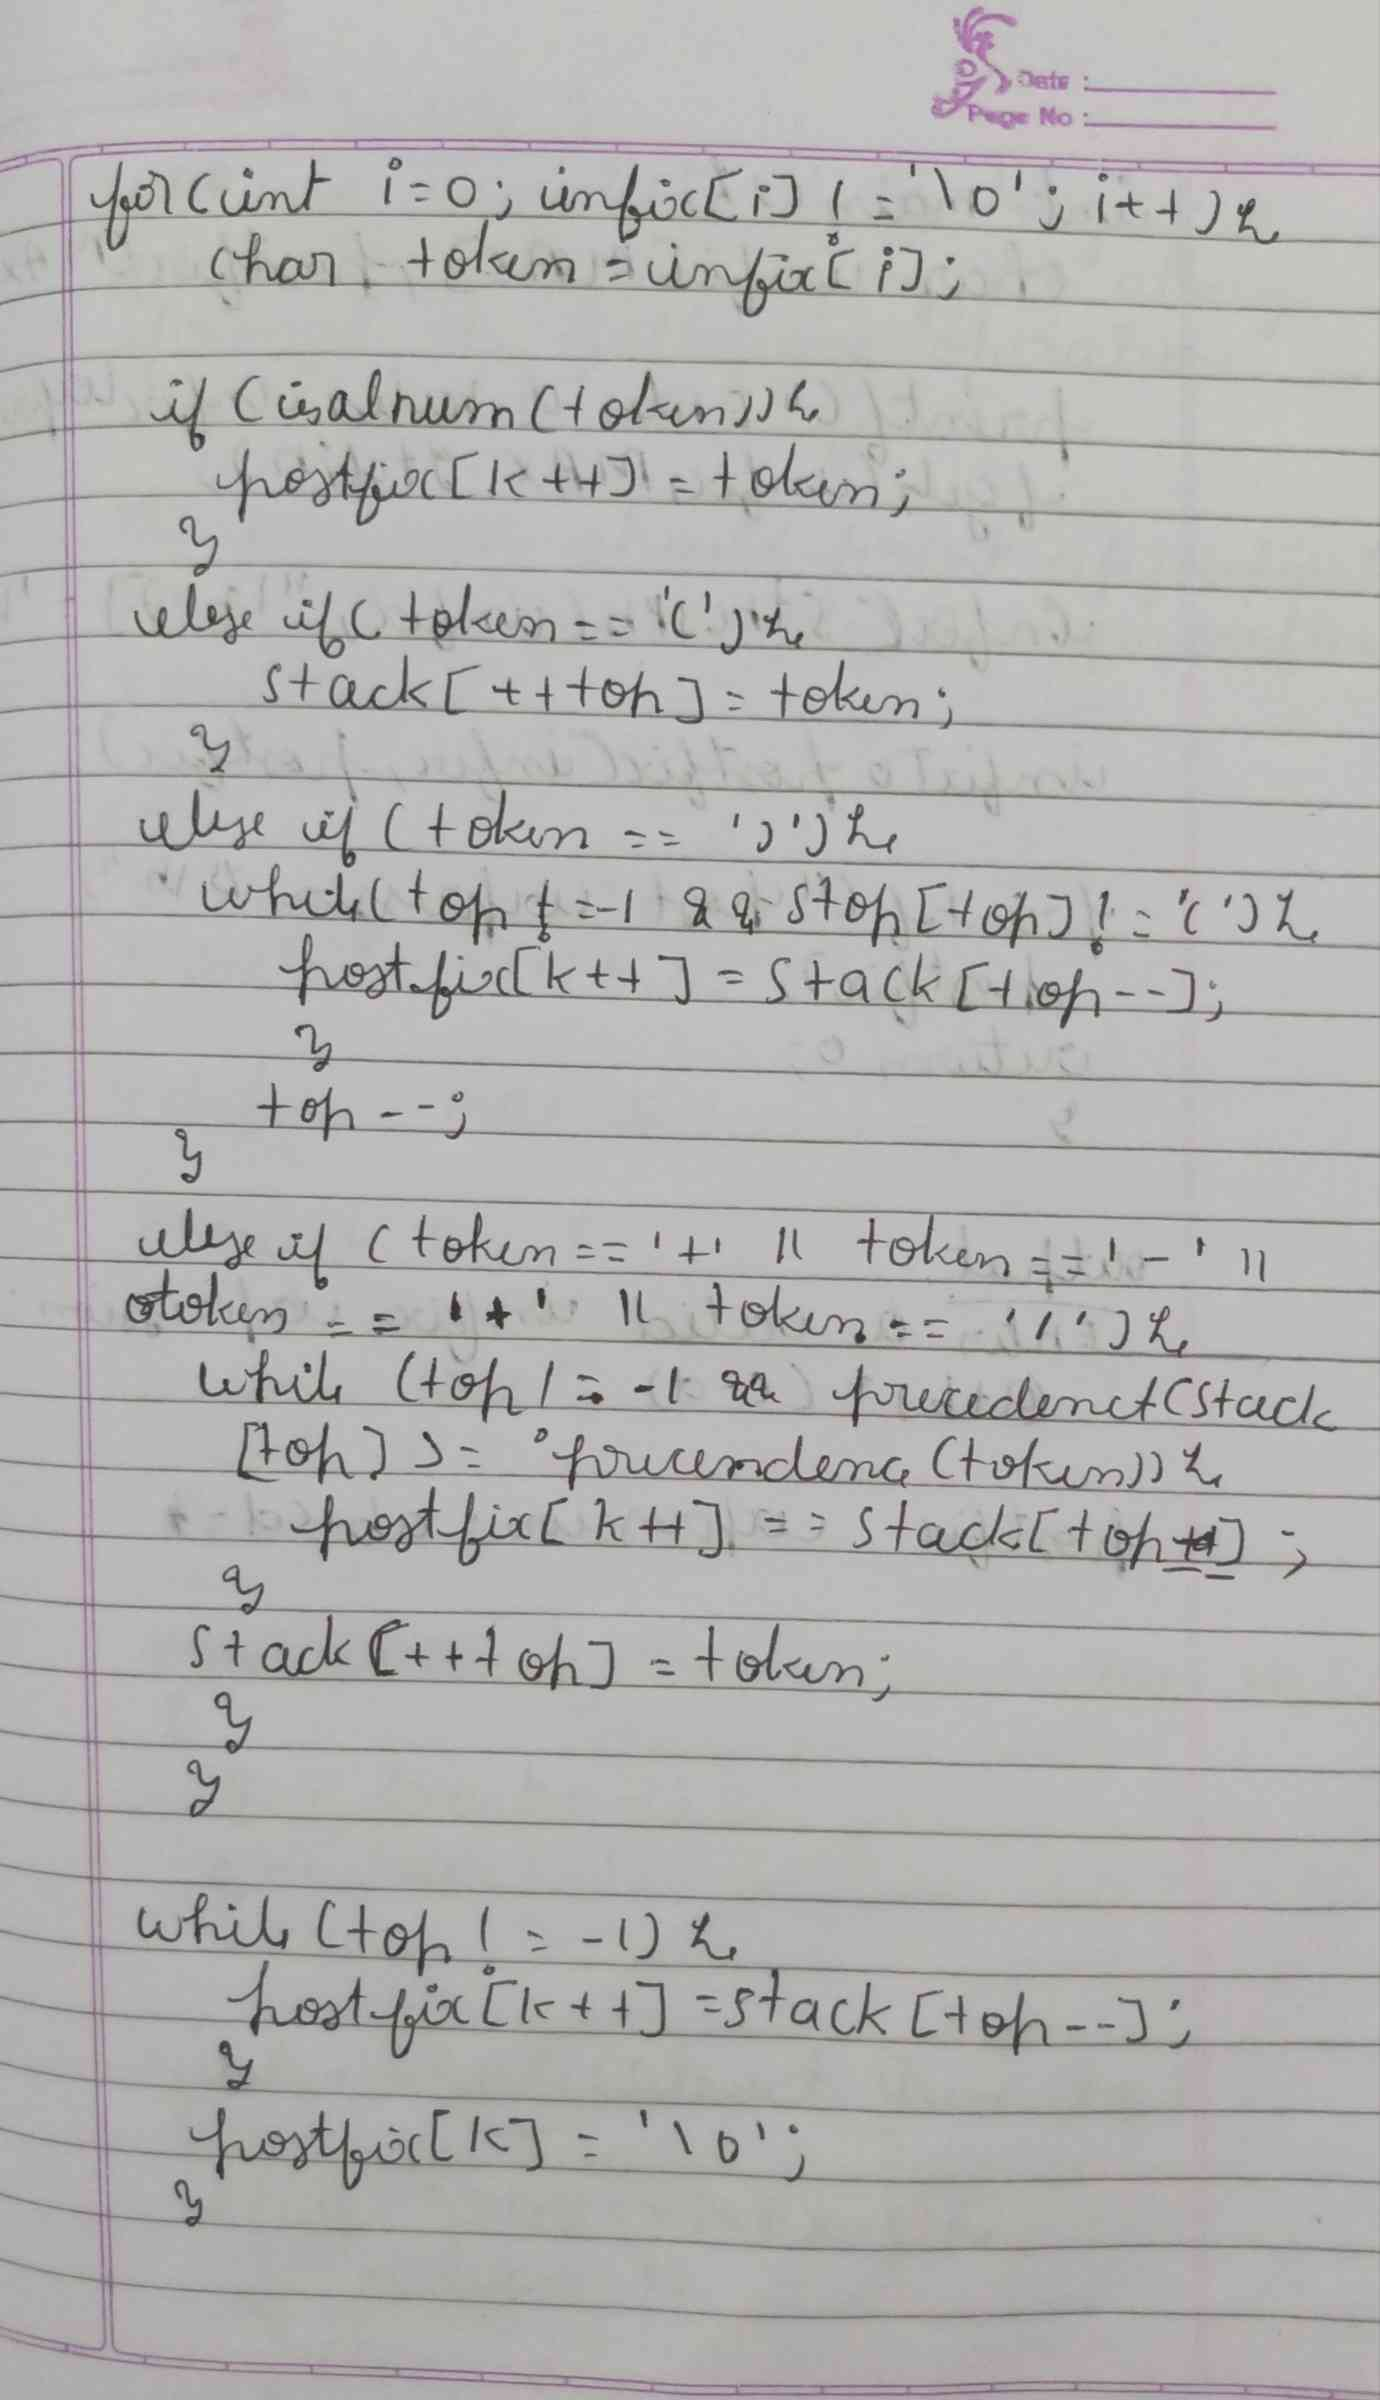 Date :
Page No :
for(int i=0; infix[i] != '\0'; i++){
char token = infix[i];
if (isalnum(token)){
postfix[k++] = token;
}
else if( token == '('){
stack[++top] = token;
}
else if (token == ')'){
while(top != -1 && stop[top] != '('){
postfix[k++] = stack[top--];
}
top--;
}
else if (token == '+' || token == '-' ||
token == '*' || token == '/'){
while (top != -1 && precedenct(stack
[top] >= precendence(token)){
postfix[k++] == stack[top--];
}
stack[++top] = token;
}
}
while (top != -1) {
postfix[k++] = stack[top--];
}
postfix[k] = '\0';
}